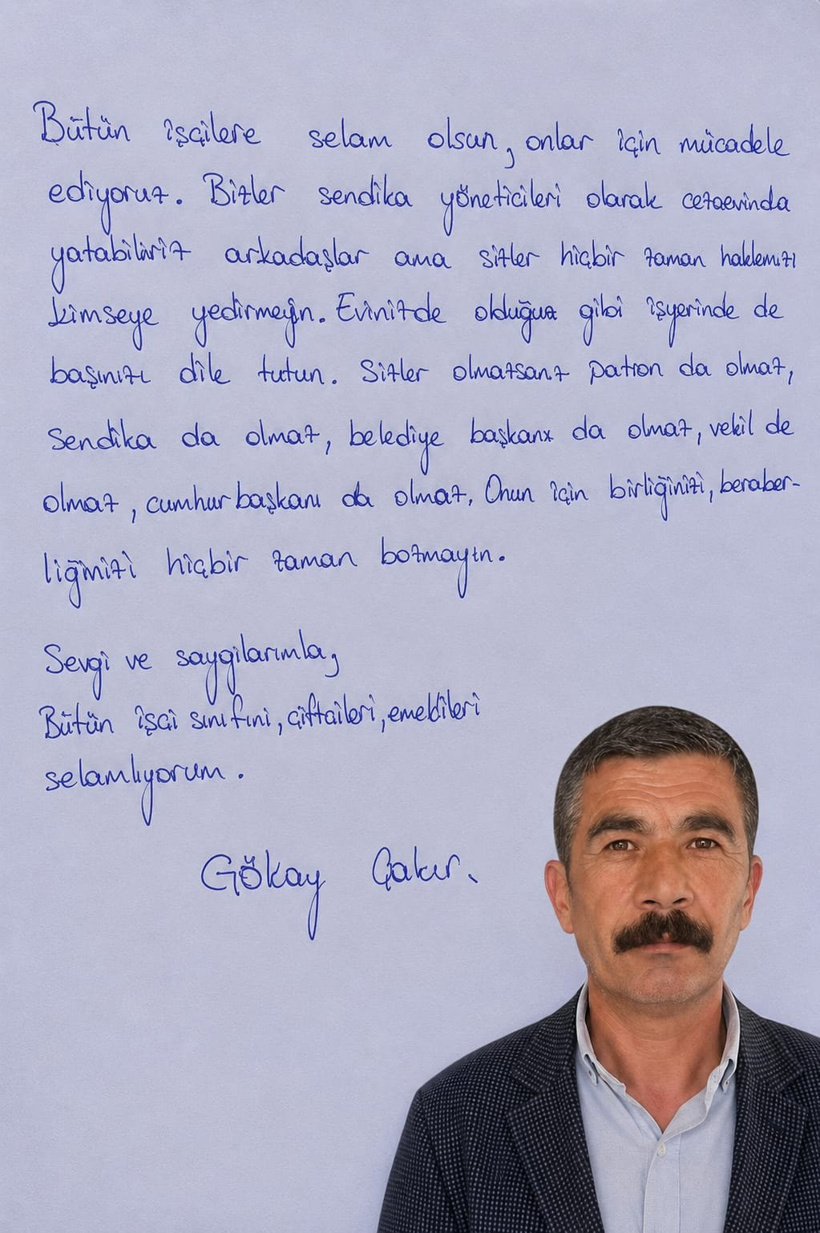 Bütün işçilere selam olsun, onlar için mücadele
ediyoruz. Bizler sendika yöneticileri olarak cezaevinda
yatabiliriz arkadaşlar ama sizler hiçbir zaman haklemızı
kimseye yedirmeyin. Evinizde olduğua gibi işyerinde de
başınızı dile tutun. Sizler olmazsanz patron da olmaz,
sendika da olmaz, belediye başkanı da olmaz, vekil de
olmaz, cumhurbaşkanı da olmaz. Onun için birliğinizi, beraber-
liğinizi hiçbir zaman bozmayın.
Sevgi ve saygılarımla,
Bütün işçi sınıfını, çiftçileri, emeklileri
selamlıyorum.
Gökay Çakır.